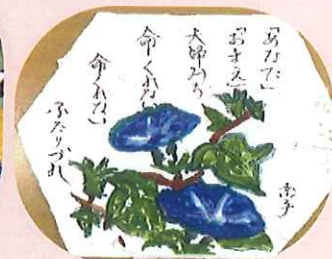 「あなた」
「おまえ」
夫婦みち
命くれない
命くれない
ふたりづれ